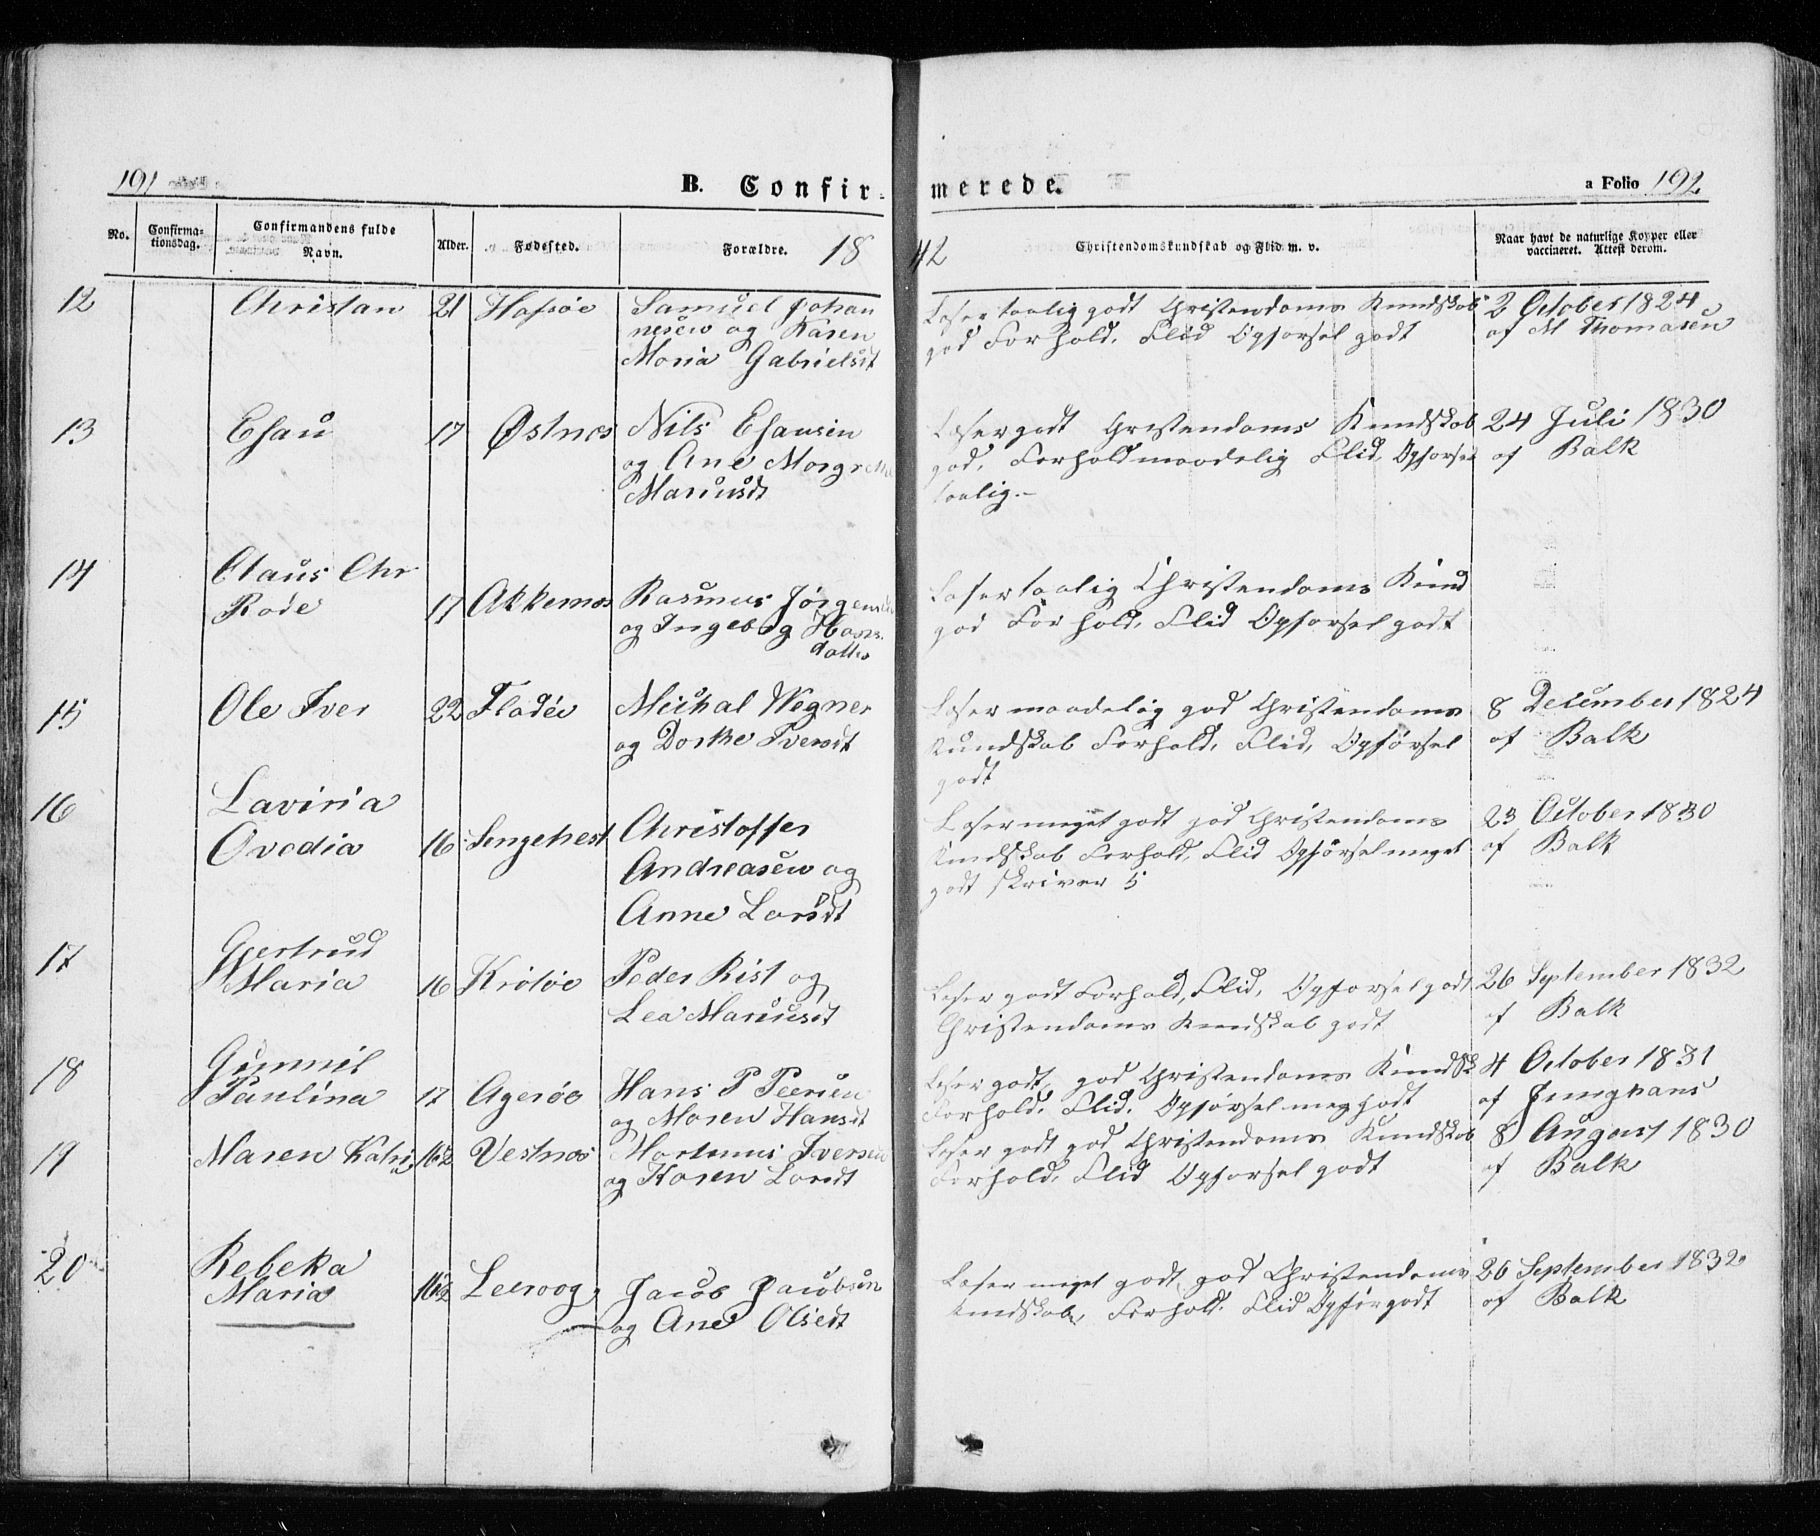 191
B. Confir-
merede.
a Folio 192
No.
Confirma-
tionsdag.
Confirmandens fulde
Navn.
Alder.
Fødested.
Forældre.
18
42
Christendomskundskab og Flid m. v.
Naar havt de naturlige Kopper eller
vaccineret. Attest derom.
12 Christan 21 Hafsöe Samuel Johan
nesen og Karen
Maria Gabrielsdt
Læser taalig godt Christendoms Kundskab
god Forhold, Flid Opførsel godt
2 October 1824
af M Thomasen
13 Esau 17 Østnes Nils Esausen
og Ane Margrethe
Mariusdt
Læser godt Christendoms Kundskab
god, Forhold maadelig Flid, Opførsel
taalig.-
24 Juli 1830
af Balk
14 Claus Chr
Rode 17 Akkernes Rasmus Jørgensen
og Ingeborg Hans
datter
Læser taalig Christendoms Kund
god Forhold, Flid Opførsel godt
15 Ole Iver 22 Fladöe Michal Wegner
og Dorthe Iversdt
Læser maadelig god Christendoms
Kundskab Forhold, Flid, Opførsel
godt
8 December 1824
af Balk
16 Lavinia
Ovedia 16 Christoffer
Andreasen og
Anne Larsdt
Læser meget godt god Christendoms
Kundskab Forhold, Flid Opførsel meget
godt skriver 5
23 October 1830
af Balk
17 Gjertrud
Maria 16 Peder Rist og
Lea Mariusdt
Læser godt Forhold, Flid, Opførsel godt
Christendoms Kundskab godt
26 September 1832
af Balk
18 Gunnil
Paulina 17 Ageröe Hans P Peersen
og Maren Hansdt
Læser godt, god Christendoms Kundsk
Forhold, Flid, Opførsel meg godt
4 October 1831
af Junghans
19 Maren Katri 16½ Vestnes Martinus Iversen
og Karen Larsdt
Læser godt god Christendoms Kundskab
Forhold, Flid Opførsel godt
8 August 1830
af Balk
20 Rebeka
Maria 16½ Jacob Jacobsen
og Ane Olsedt
Læser meget godt, god Christendoms
Kundskab, Forhold, Flid Opfør godt
26 September 1832
af Balk